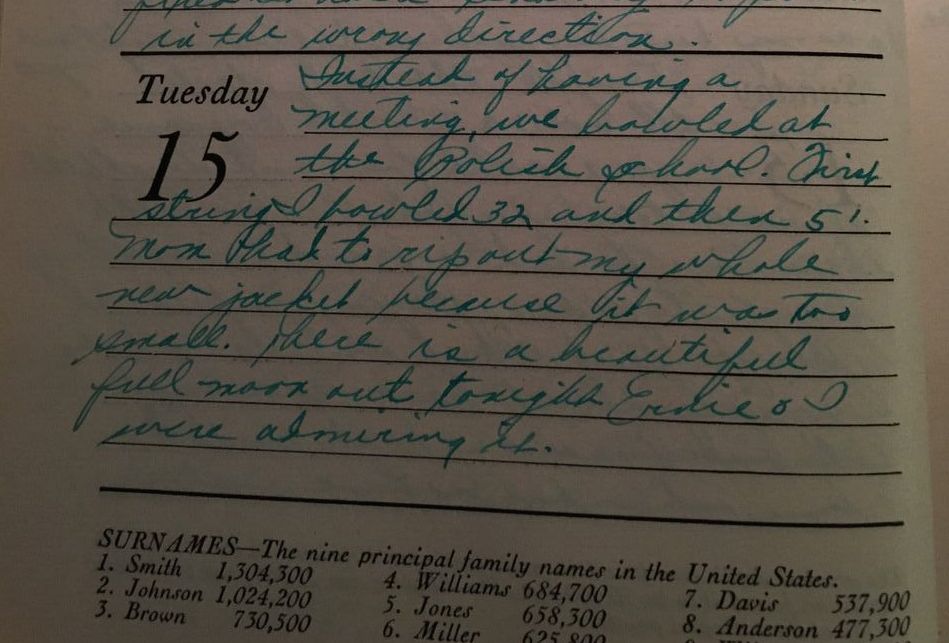 in the wrong direction.
Tuesday
15
Instead of having a
meeting, we bowled at
the Polish school. First
string I bowled 32 and then 51.
Mom had to rip out my whole
new jacket because it was too
small. There is a beautiful
full moon out tonight Ernie & I
were admiring it.
SURNAMES—The nine principal family names in the United States.
1. Smith 1,304,300
2. Johnson 1,024,200
3. Brown 730,500
4. Williams 684,700
5. Jones 658,300
6. Miller 625,800
7. Davis 537,900
8. Anderson 477,300